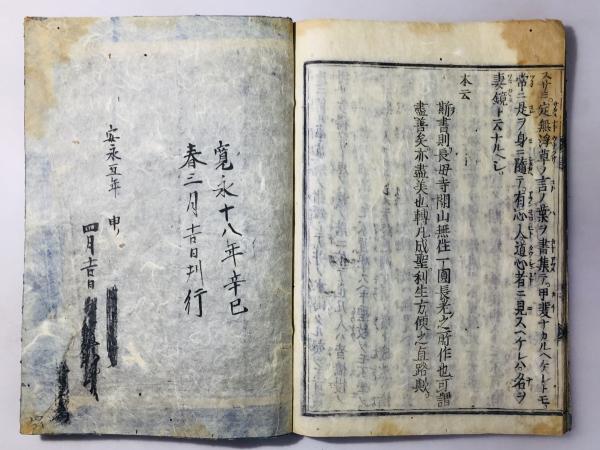 スサミニ定無浮草ノ言ノ葉ヲ書集テ甲斐ナカルヘケレトモ
常ニ是ヲ身ニ随テ有心人道心者ニ見スヘケレハ名ヲ
妻鏡ト云ナルヘシ
本云
斯書則長母寺開山無住一圓長老之所作也可謂
盡善矣亦盡美也轉凡成聖利生方便之直路歟
寛永十八年辛巳
春三月吉日刊行
安永五年 申
四月吉日